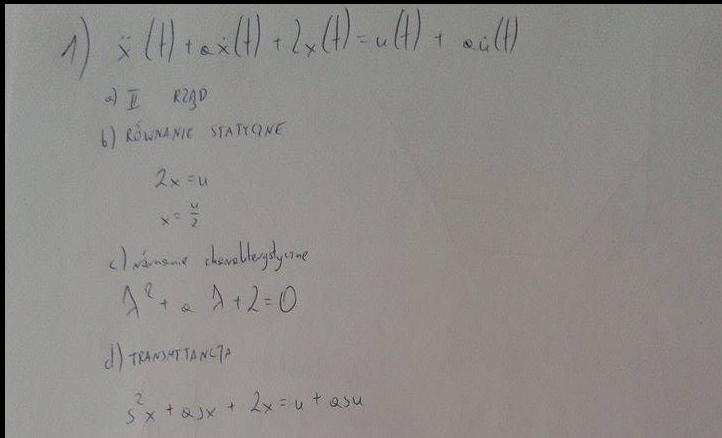 1) ẍ(t) + aẋ(t) + 2x(t) = u(t) + au̇(t)
a) II RZĄD
b) RÓWNANIE STATYCZNE
2x = u
x = u/2
c) równanie charakterystyczne
λ² + a λ + 2 = 0
d) TRANSMITANCJA
s²x + asx + 2x = u + asu